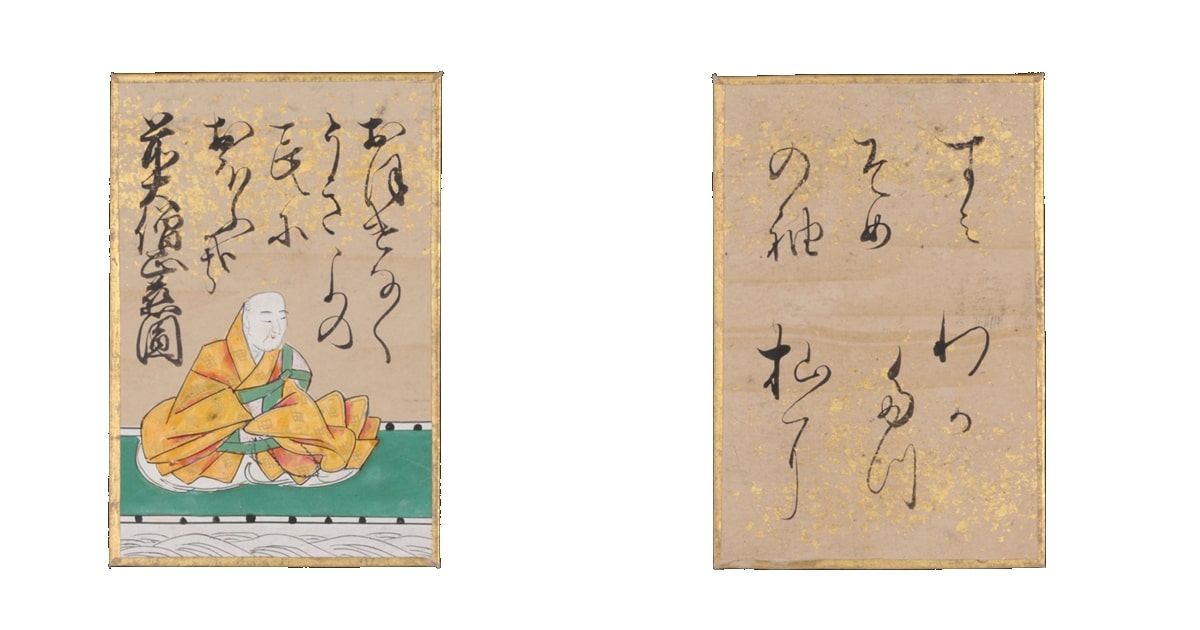 おほけなく
うきよの
民に
おほふ哉
前大僧正慈圓
わか
たつ
杣に
すみ
そめ
の袖